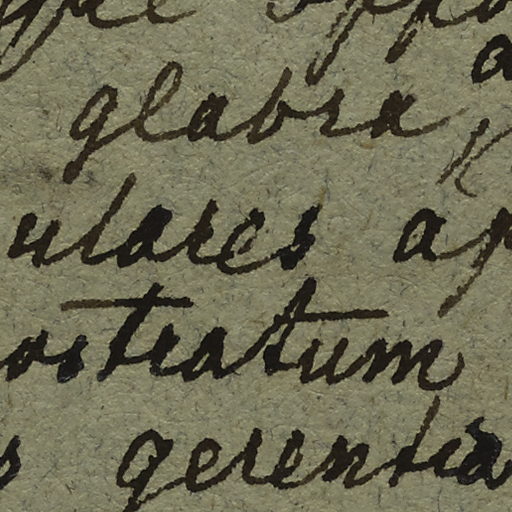 glabra
ulares ap
ostratum
gerentia